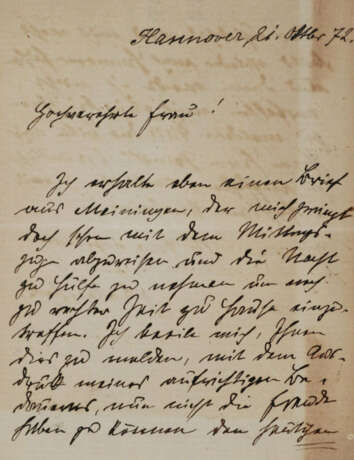 Hannover 21. Oktbr 72.
Hochverehrte Frau!
Ich erhalte eben einen Brief
aus Meiningen, der mich zwingt
doch schon mit dem Mittags-
zuge abzureisen und die Nacht
zu Hülfe zu nehmen um noch
zu rechter Zeit zu Hause einzu-
treffen. Ich beeile mich, Ihnen
dies zu melden, mit dem Aus-
druck meines aufrichtigen Be-
dauerns, nun nicht die Freude
haben zu können den heutigen